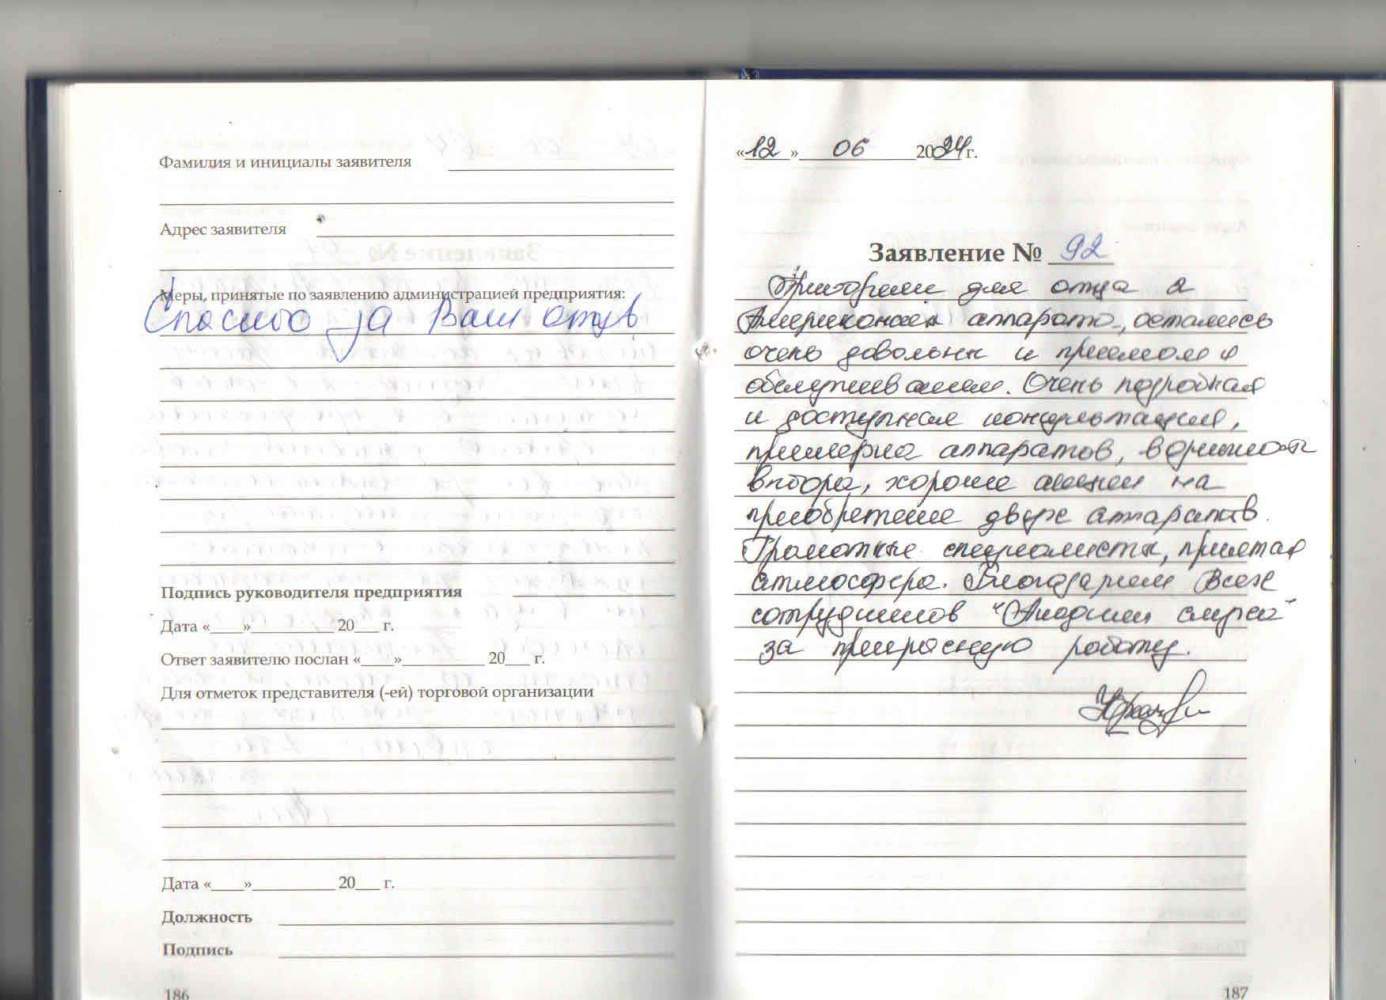 Фамилия и инициалы заявителя
Адрес заявителя
Меры, принятые по заявлению администрацией предприятия:
Спасибо за Ваш отзыв
Подпись руководителя предприятия
Дата «____»__________ 20___ г.
Ответ заявителю послан «____»__________ 20___ г.
Для отметок представителя (-ей) торговой организации
Дата «____»__________ 20___ г.
Должность
Подпись
186
«12» 06 2024г.
Заявление № 92
Приобрели для отца 2
Американских аппарата, остались
очень довольны и приемом и
обслуживанием. Очень подробная
и доступная консультация,
примерка аппаратов, возможность
выбора, хорошие акции на
приобретение двух аппаратов.
Грамотные специалисты, приятная
атмосфера. Благодарим Всех
сотрудников
за прекрасную работу.
187